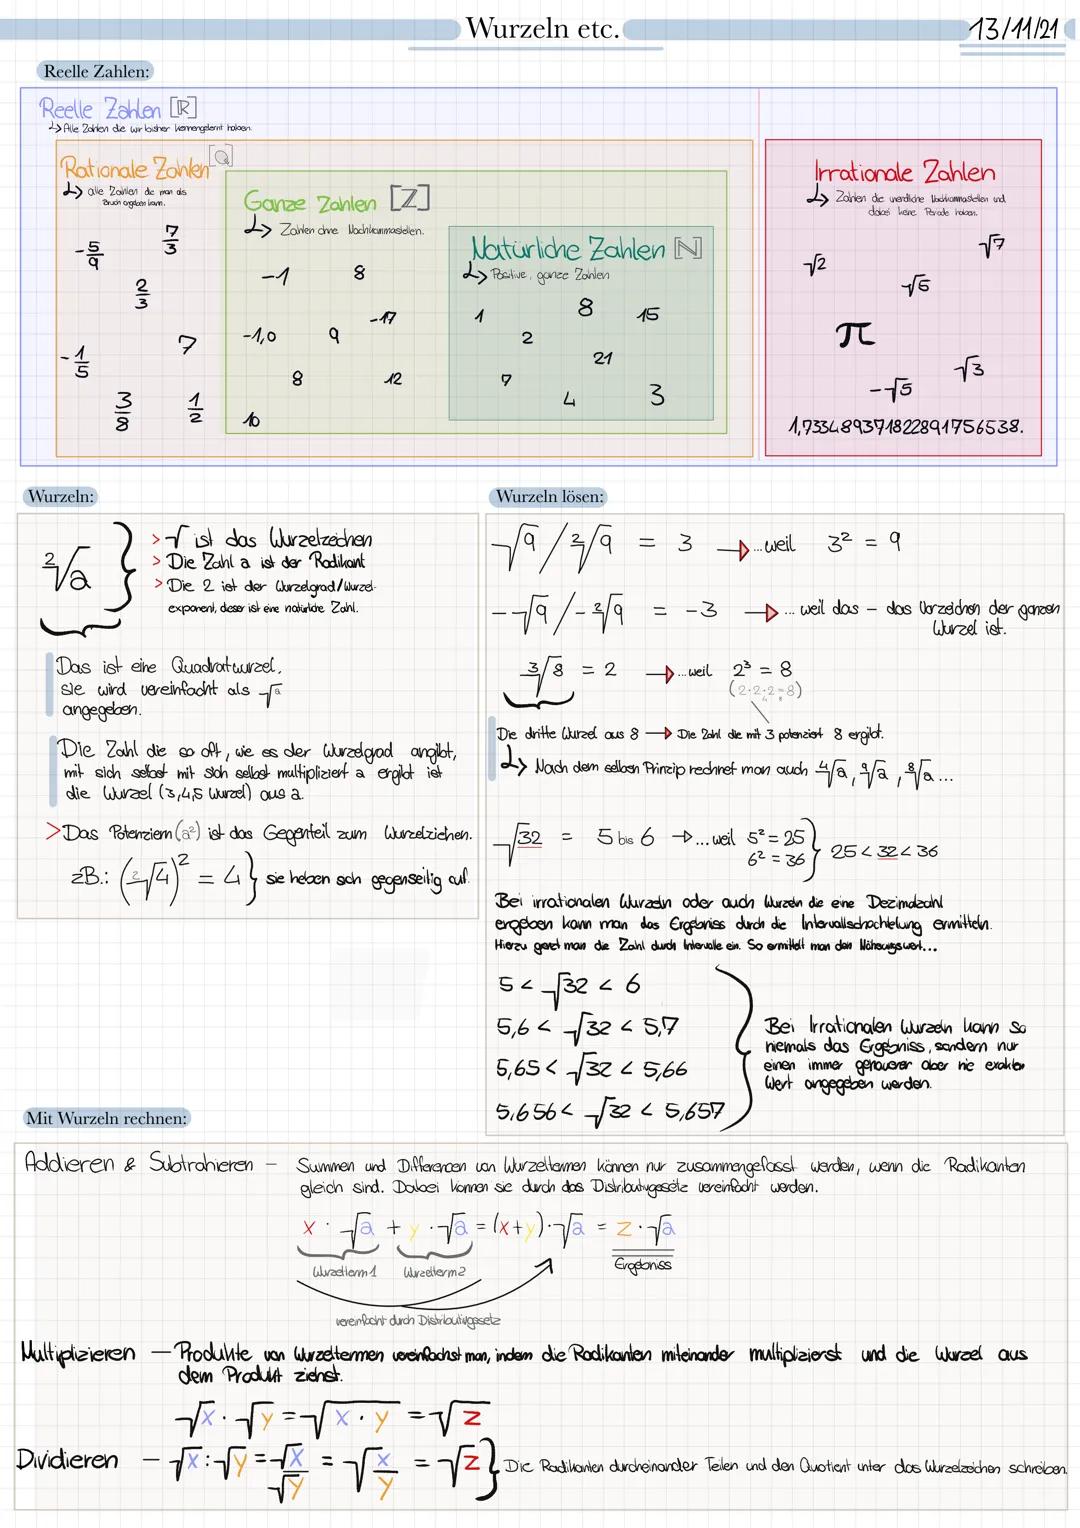 Wurzeln etc.
13/11/21
Reelle Zahlen:
Reelle Zahlen [ℝ]
↳ Alle Zahlen die wir bisher kennengelernt haben.
Rationale Zahlen [ℚ]
↳ alle Zahlen die man als
Bruch angeben kann.
-5/9
7/3
2/3
7
-1/5
3/8
1/2
Ganze Zahlen [ℤ]
↳ Zahlen ohne Nachkommastellen.
-1 8
-17
-1,0 9
8 12
10
Natürliche Zahlen [ℕ]
↳ Positive, ganze Zahlen
8
1 15
2
21
7
4 3
Irrationale Zahlen
↳ Zahlen die unendliche Nachkommastellen und
dabei keine Periode haben.
√7
√2
√6
π
√3
-√5
1,733489371822891756538.
Wurzeln:
²√a
> √ ist das Wurzelzeichen
> Die Zahl a ist der Radikant
> Die 2 ist der Wurzelgrad/Wurzel-
exponent, dieser ist eine natürliche Zahl.
Das ist eine Quadratwurzel,
sie wird vereinfacht als √a
angegeben.
Die Zahl die so oft, wie es der Wurzelgrad angibt,
mit sich selbst mit sich selbst multipliziert a ergibt ist
die Wurzel (3,4,5 Wurzel) aus a.
> Das Potenzieren (a²) ist das Gegenteil zum Wurzelziehen.
zB.: (²√4)² = 4 } sie heben sich gegenseitig auf.
Wurzeln lösen:
√9 / ²√9 = 3 → ...weil 3² = 9
-√9 / -²√9 = -3 → ... weil das - das Vorzeichen der ganzen
Wurzel ist.
³√8 = 2 → ...weil 2³ = 8
(2·2·2=8)
4 8
Die dritte Wurzel aus 8 → Die Zahl die mit 3 potenziert 8 ergibt.
↳ Nach dem selben Prinzip rechnet man auch ⁴√a, ⁹√a, ⁸√a...
√32 = 5 bis 6 → ...weil 5² = 25
6² = 36 } 25 < 32 < 36
Bei irrationalen Wurzeln oder auch Wurzeln die eine Dezimalzahl
ergeben kann man das Ergebniss durch die Intervallschachtelung ermitteln.
Hierzu genzt man die Zahl durch Intervalle ein. So ermittelt man den Näherungswert...
5 < √32 < 6
5,6 < √32 < 5,7
5,65 < √32 < 5,66
5,656 < √32 < 5,657
Bei Irrationalen Wurzeln kann so
niemals das Ergebniss, sondern nur
einen immer genauerer aber nie exakter
Wert angegeben werden.
Mit Wurzeln rechnen:
Addieren & Subtrahieren - Summen und Differenzen von Wurzeltermen können nur zusammengefasst werden, wenn die Radikanten
gleich sind. Dabei können sie durch das Distributivgesetz vereinfacht werden.
x · √a + y · √a = (x+y) · √a = z · √a
Wurzelterm 1 Wurzelterm 2 Ergebniss
vereinfacht durch Distributivgesetz
Multiplizieren - Produkte von Wurzeltermen vereinfachst man, indem die Radikanten miteinander multiplizierst und die Wurzel aus
dem Produkt ziehst.
√x · √y = √x · y = √z
Dividieren - √x : √y = √x/√y = √x/y = √z } Die Radikanten durcheinander Teilen und den Quotient unter das Wurzelzeichen schreiben.